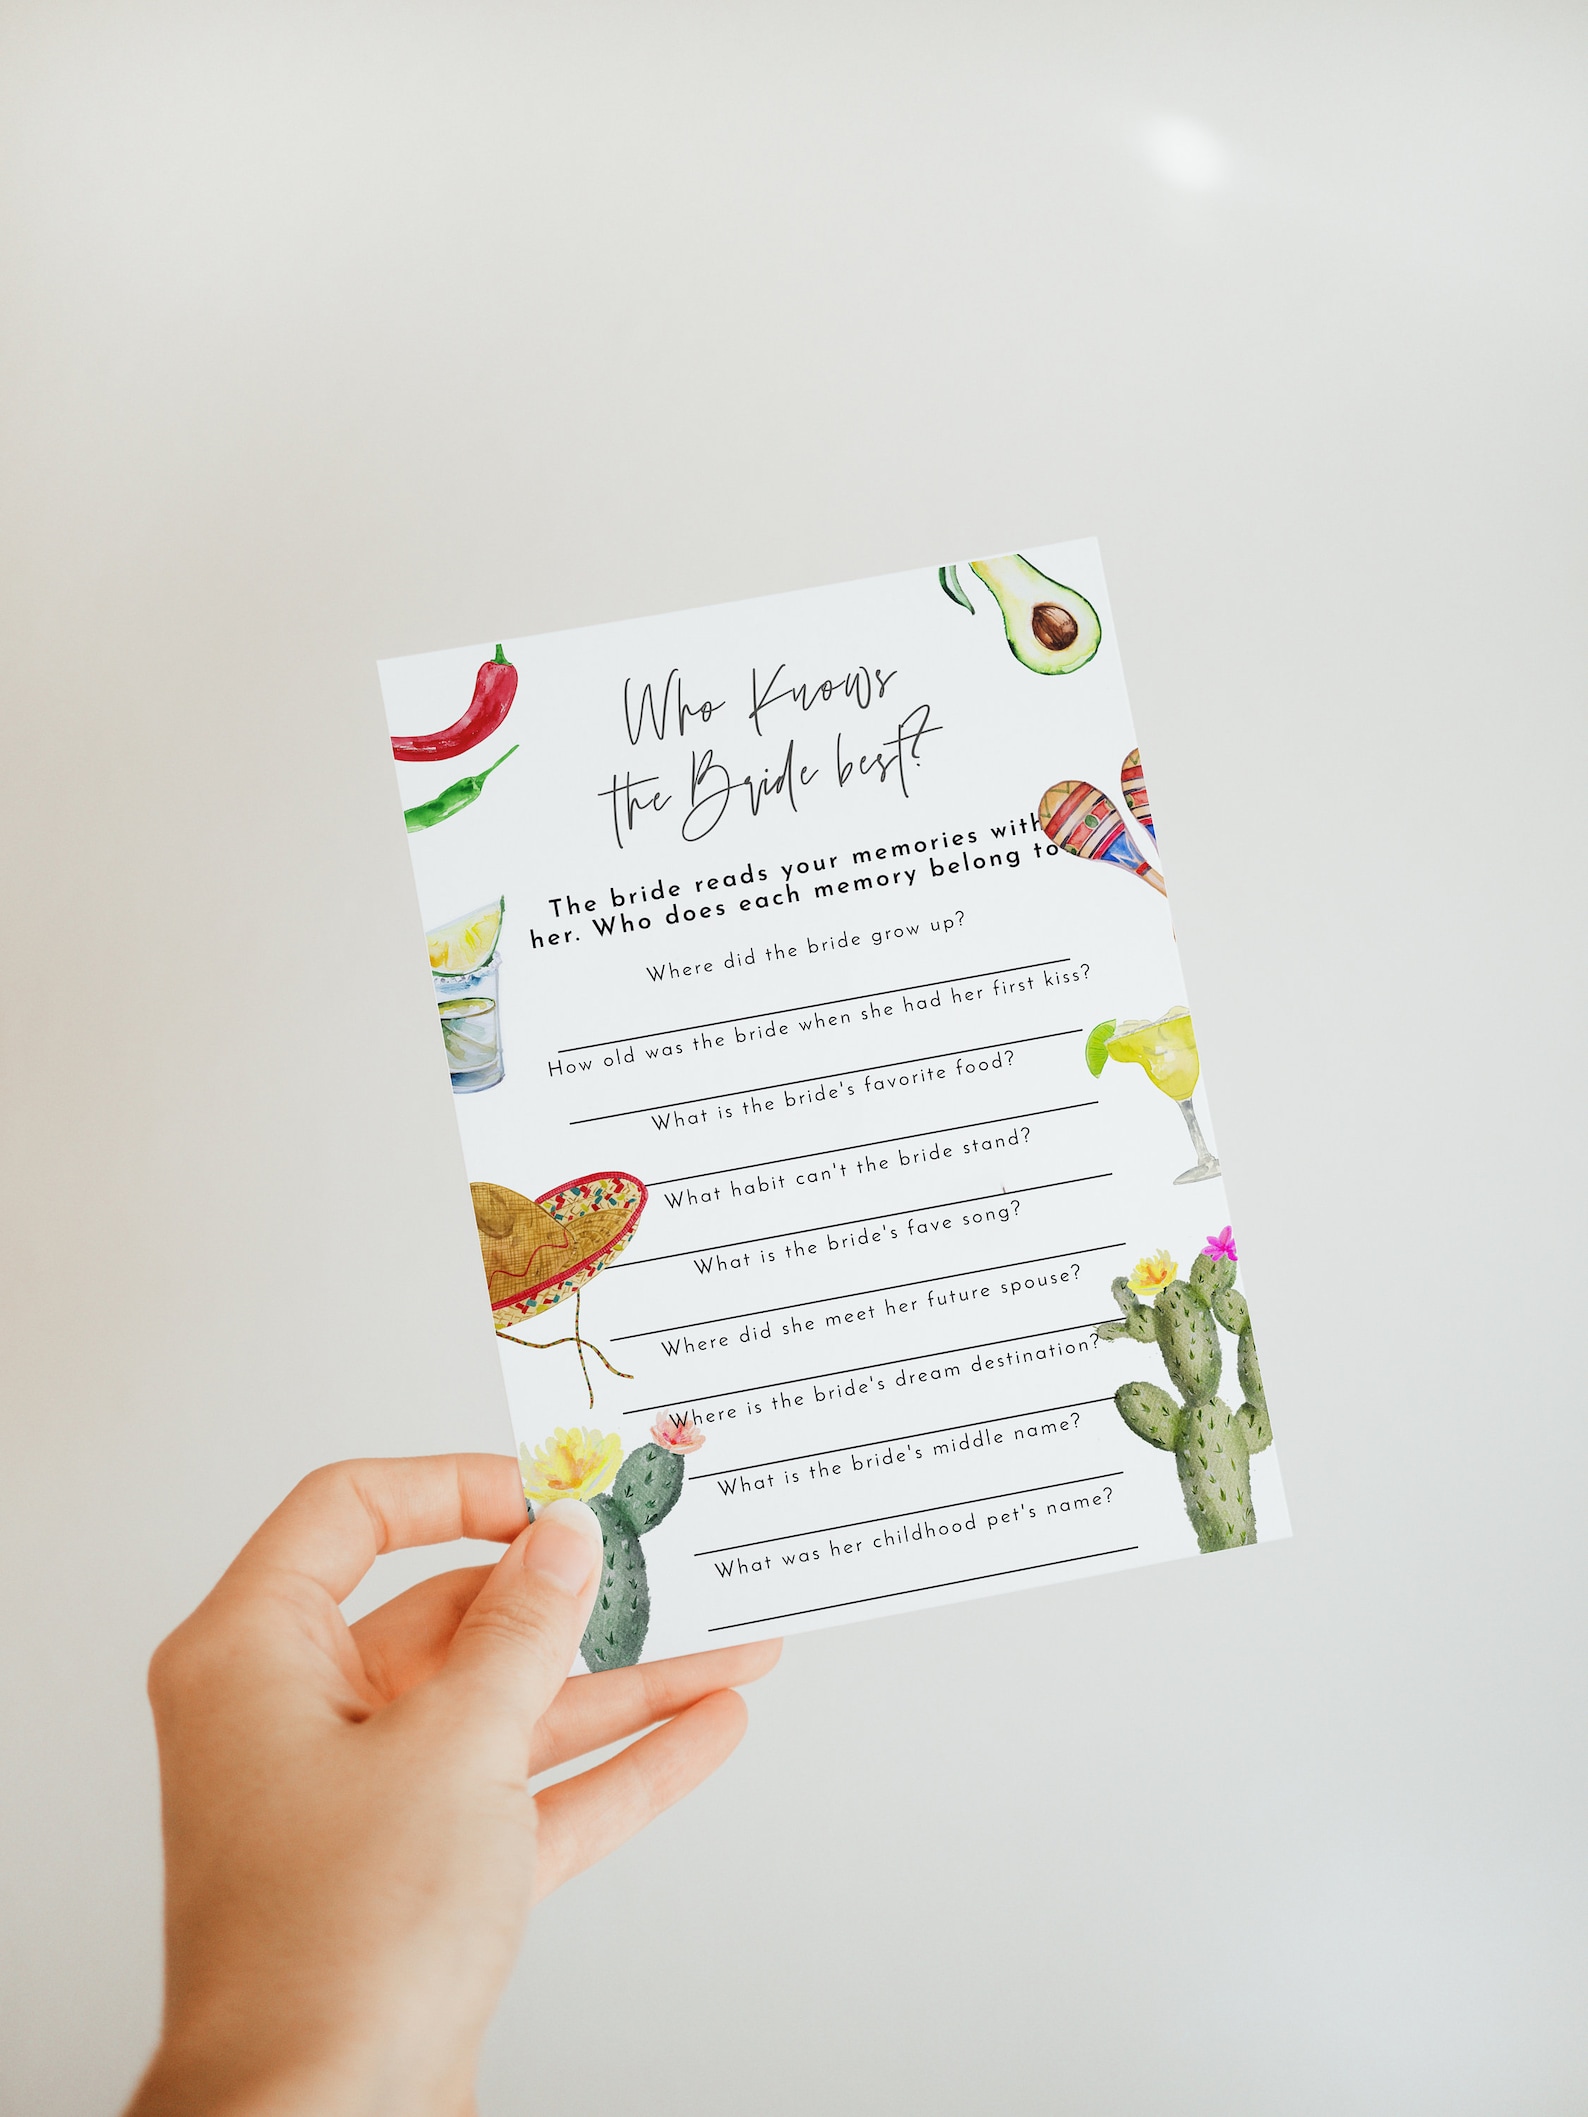 Who Knows
the Bride best?
The bride reads your memories with
her. Who does each memory belong to
Where did the bride grow up?
How old was the bride when she had her first kiss?
What is the bride's favorite food?
What habit can't the bride stand?
What is the bride's fave song?
Where did she meet her future spouse?
Where is the bride's dream destination?
What is the bride's middle name?
What was her childhood pet's name?